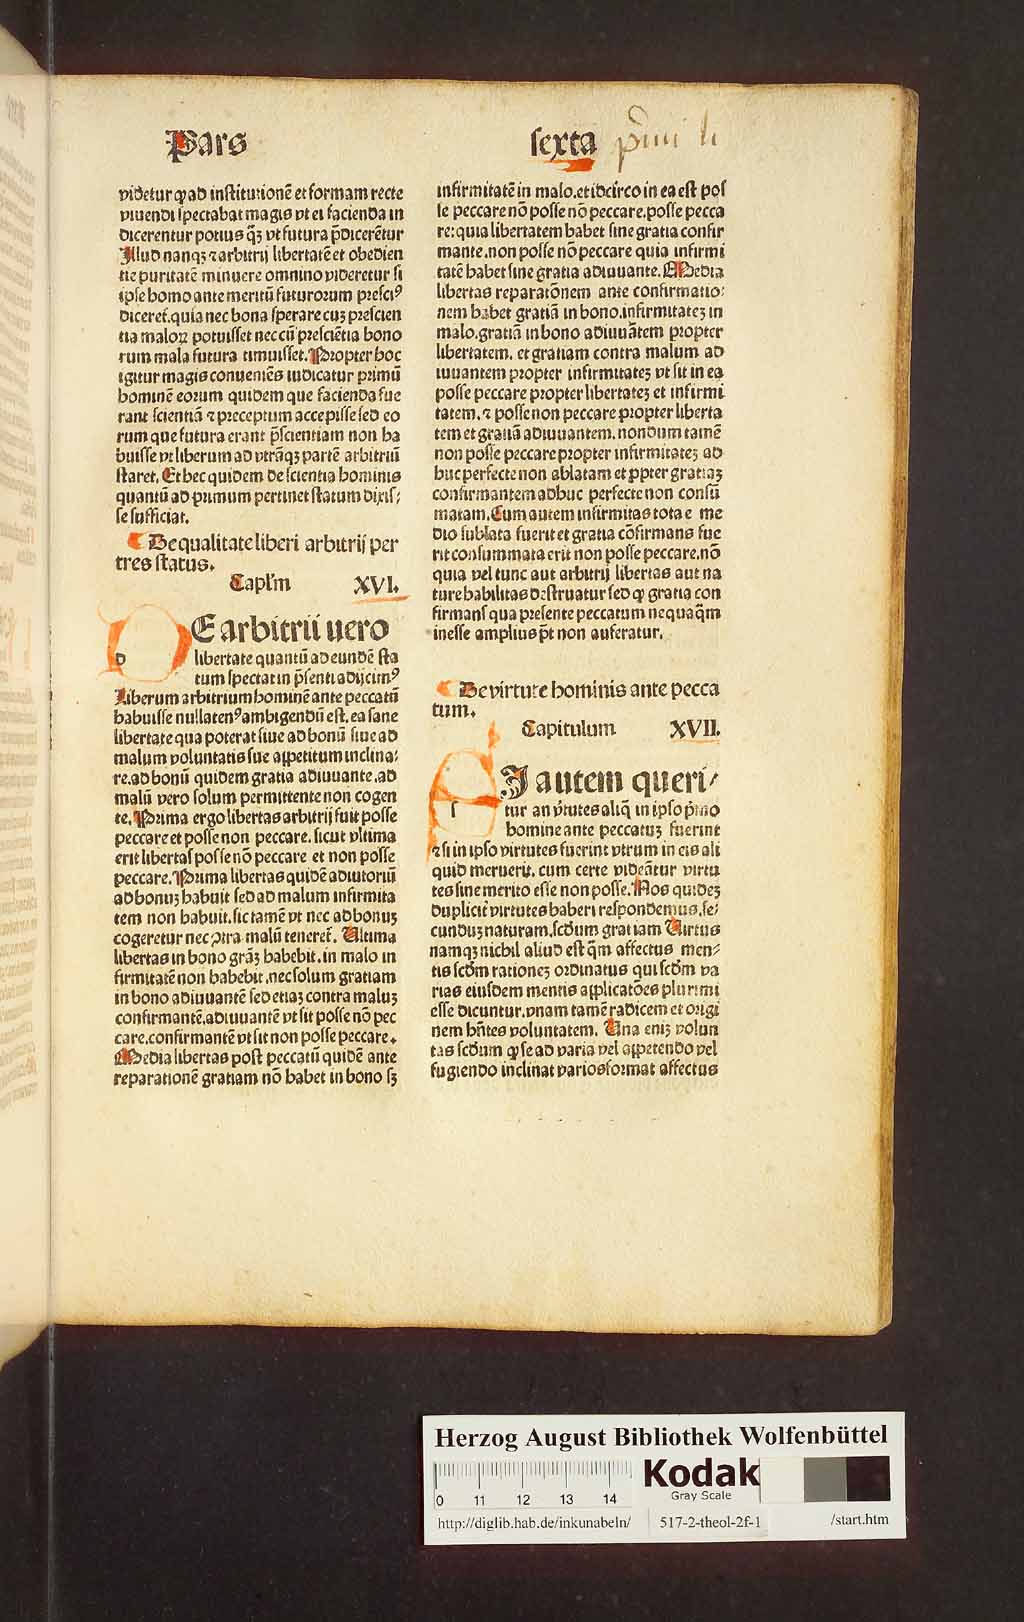 Pars
sexta p̄mi li
videtur ꝙ ad institutionē et formam recte
viuendi spectabat magis vt ei facienda in
dicerentur potius q̄ꝫ vt futura p̄dicerētur
Illud nanqꝫ ⁊ arbitrij libertatē et obedien
tie puritatē minuere omnino videretur si
ipse homo ante meritū futurorum presciꝰ
diceret. quia nec bona sperare cuꝫ prescien
tia maloꝝ potuisset nec cū presciētia bono
rum mala futura timuisset. Propter hoc
igitur magis conueniēs iudicatur primū
hominē eorum quidem que facienda fue
rant scientiā ⁊ preceptum accepisse sed eo
rum que futura erant p̄scientiam non ha
buisse vt liberum ad vtrāqꝫ partē arbitriū
staret. Et hec quidem de scientia hominis
quantū ad primum pertinet statum dixis⸗
se sufficiat.
De qualitate liberi arbitrij per
tres status.
Capl'm XVI.
d
E arbitrii uero
libertate quantū ad eundē sta
tum spectat in p̄senti adijcimꝰ
Liberum arbitrium hominē ante peccatū
habuisse nullatenꝰ ambigendū est. ea sane
libertate qua poterat siue ad bonū siue ad
malum voluntatis sue appetitum inclina⸗
re. ad bonū quidem gratia adiuuante. ad
malū vero solum permittente non cogen
te. Prima ergo libertas arbitrij fuit posse
peccare et posse non peccare. sicut vltima
erit libertas posse nō peccare et non posse
peccare. Prima libertas quidē adiutoriū
ad bonuꝫ habuit sed ad malum infirmita
tem non habuit. sic tamē vt nec ad bonuꝫ
cogeretur nec ꝯtra malū teneret̄. Ultima
libertas in bono grāꝫ habebit. in malo in
firmitatē non habebit. nec solum gratiam
in bono adiuuantē sed etiaꝫ contra maluꝫ
confirmantē. adiuuantē vt sit posse nō pec
care. confirmantē vt sit non posse peccare.
Media libertas post peccatū quidē ante
reparationē gratiam nō habet in bono sꝫ
infirmitatē in malo. et idcirco in ea est pos
se peccare nō posse nō peccare. posse pecca
re: quia libertatem habet sine gratia confir
mante. non posse nō peccare quia infirmi
tatē habet sine gratia adiuuante. Media
libertas reparatōnem ante confirmatio⸗
nem habet gratiā in bono. infirmitateꝫ in
malo. gratiā in bono adiuuātem propter
libertatem. et gratiam contra malum ad
iuuantem propter infirmitateꝫ vt sit in ea
posse peccare propter libertateꝫ et infirmi
tatem. ⁊ posse non peccare propter liberta
tem et gratiā adiuuantem. nondum tamē
non posse peccare propter infirmitateꝫ ad
huc perfecte non ablatam et ꝓpter gratiaꝫ
confirmantem adhuc perfecte non consū
matam. Cum autem infirmitas tota e me
dio sublata fuerit et gratia cōfirmans fue
rit consummata erit non posse peccare. nō
quia vel tunc aut arbitrij libertas aut na
ture habilitas destruatur sed ꝙ gratia con
firmans qua presente peccatum nequaq̄m
inesse amplius p̄t non auferatur.
De virtute hominis ante pecca
tum.
Capitulum XVII.
s
I autem queri⸗
tur an v̓tutes aliq̄ in ipso p̄mo
homine ante peccatuꝫ fuerint
⁊ si in ipso virtutes fuerint vtrum in eis ali
quid meruerit. cum certe videātur virtu
tes sine merito esse non posse. Nos quideꝫ
duplicit̓ virtutes haberi respondemus. se⸗
cunduꝫ naturam. scd̄um gratiam Uirtus
namqꝫ nichil aliud est q̄m affectus men⸗
tis scd̄m rationeꝫ ordinatus qui scd̄m va
rias eiusdem mentis applicatōes plurimi
esse dicuntur. vnam tamē radicem et origi
nem hn̄tes voluntatem. Una eniꝫ volun
tas scd̄um ꝙ se ad varia vel appetendo vel
fugiendo inclinat varios format affectus
Herzog August Bibliothek Wolfenbüttel
0 11 12 13 14
Kodak
Gray Scale
http://diglib.hab.de/inkunabeln/ 517-2-theol-2f-1 /start.htm